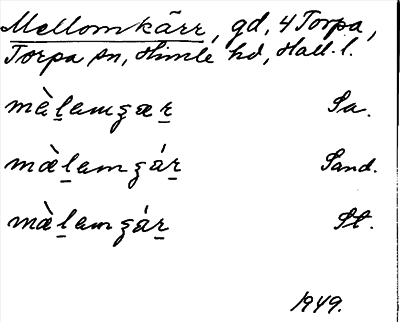 Mellomkärr, gd, 4 Torpa,
Torpa sn, Himle hd, Hall. l.
mæ̀l̠amʒær̠ Sa.
mæ̀l̠amʒár̠ Sand.
mæ̀l̠amʒár̠ St.
1949.